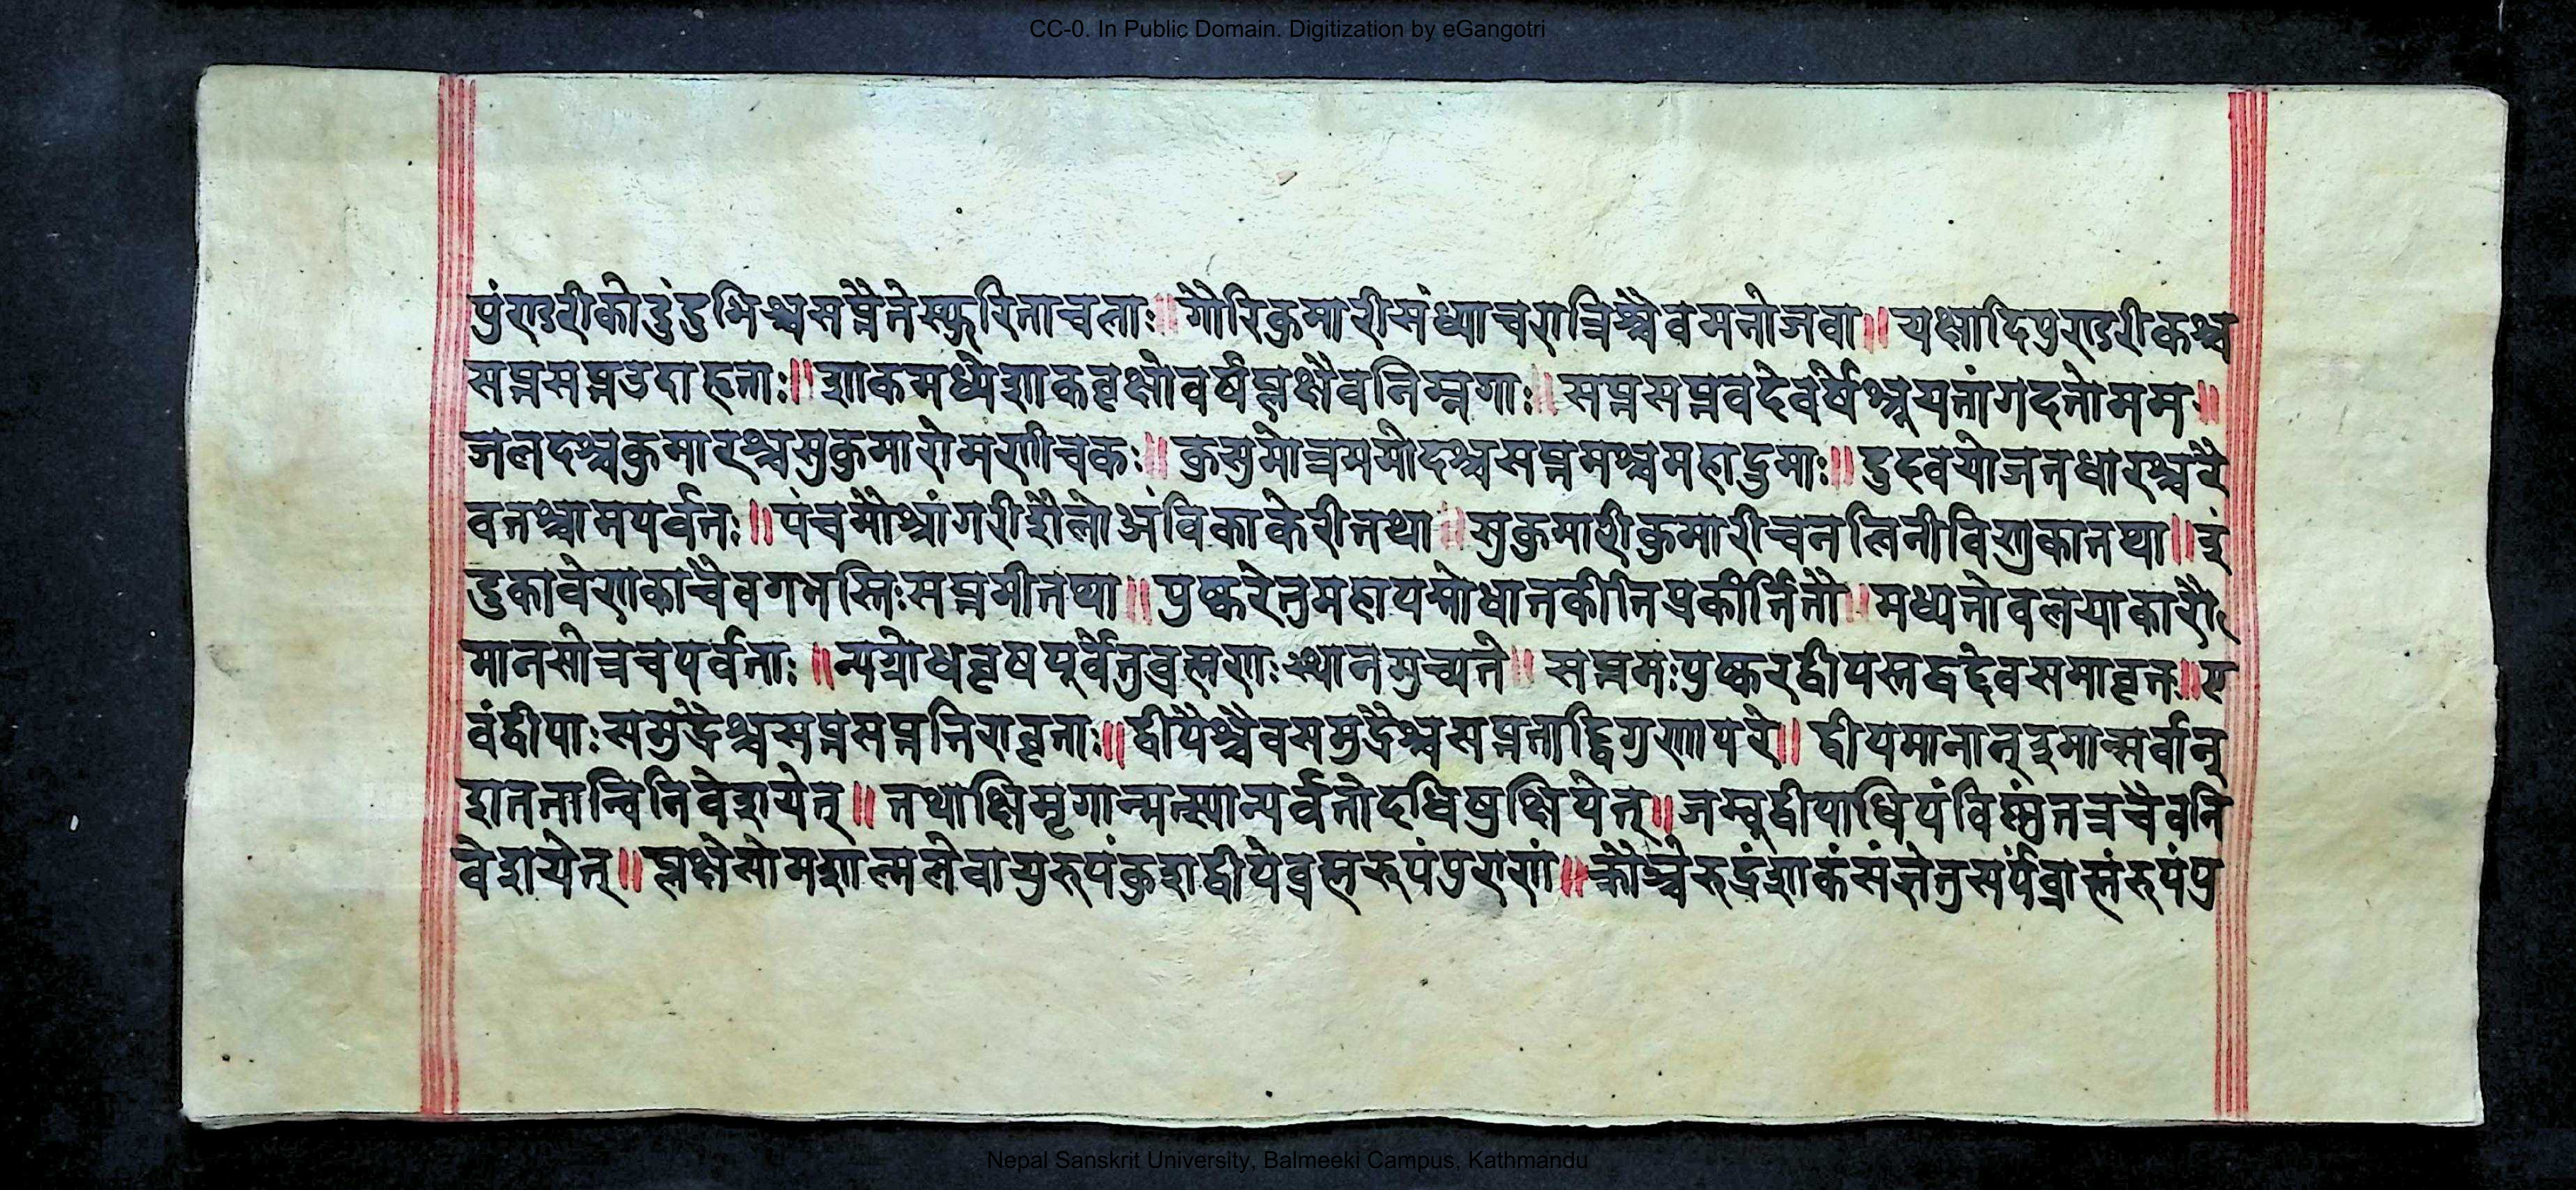 CC-0. In Public Domain. Digitization by eGangotri
पुंण्डरीकोदुंदुभिश्चसप्तैतेस्फुरिताचलाः॥गौरिकुमारीसंध्याचरात्रिश्चैवमनोजवा॥यक्षादिपुराण्डरीकश्च
सप्तसप्तउदाहृताः॥शाकमध्येशाकवृक्षोवर्षंप्लक्षैवनिम्नगाः॥सप्तसप्तवदेवर्षेश्रूयतांगदतोमम॥
जलदश्चकुमारश्चसुकुमारोमणीचकः॥कुसुमोत्तममोदश्चसप्तमश्चमहाद्रुमाः॥दुदवयोजनधारश्चरै
वतश्चामपर्वतः॥पंचमोश्चांगरीशैलोअंविकाकेरीतथा॥सुकुमारीकुमारीचनलिनीविणुकातथा॥इं
द्रुकावेणकाचैवगभस्तिःसप्तमीतथा॥पुष्करेतुमहापद्मोधातकीतिप्रकीर्तितौ॥मध्यतोवलयाकारौ
मानसोत्तचपर्वताः॥न्यग्रोधवृषपूर्वेतुव्रह्मणःस्थानमुच्यते॥सप्तमःपुष्करद्वीपस्तद्वद्देवसमावृतः॥ए
वंद्वीपाःसमुद्रैश्चसप्तसप्तभिरावृताः॥द्वीपैश्चैवसमुद्रैश्चसप्तताद्विगुणापरे॥द्वीपमानान्द्रुमान्सर्वान्
शततान्विनिवेशयेत्॥तथाक्षिमृगान्मत्स्यान्पर्वतोदधिषुक्षिपेत्॥जम्बुद्वीपाधिपंविष्णुंतत्रचैवनि
वेशयेत्॥प्लक्षेसोमशाल्मलेवायुरुपंकुशद्वीपेव्रह्मरूपंपुराणं॥क्रौश्चेरुद्रंशाकंसंज्ञेतुसर्पंव्राह्मंरुपंपु
Nepal Sanskrit University, Balmeeki Campus, Kathmandu